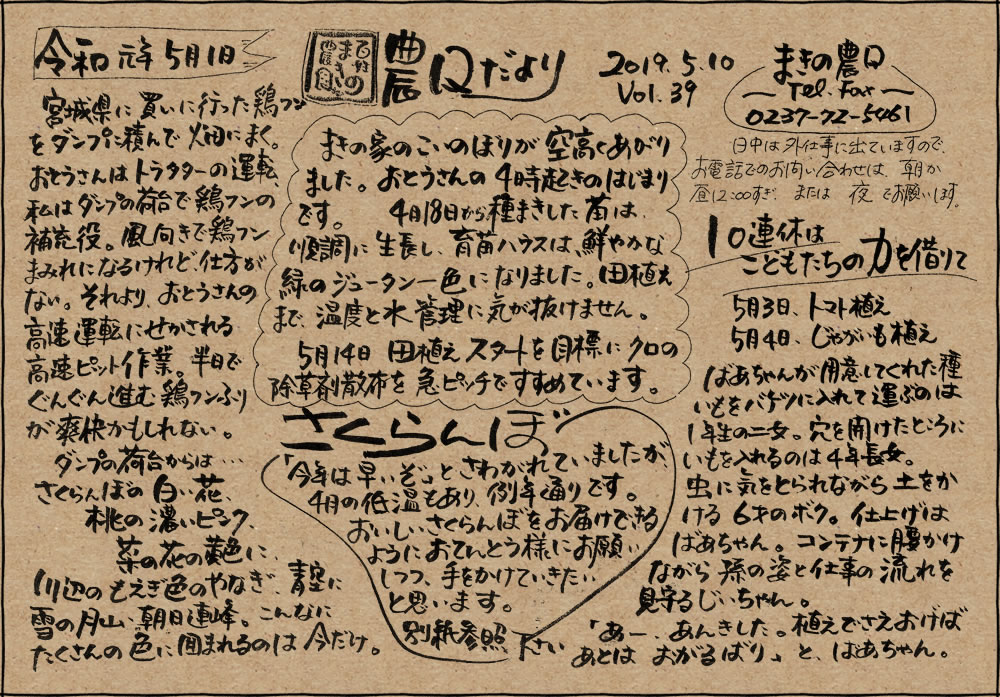 令和元年5月1日
宮城県に買いに行った鶏フン
をダンプに積んで火田にまく。
おとうさんはトラクターの運転、
私はダンプの荷台で鶏フンの
補充役。風向きで鶏フン
まみれになるけれど、仕方が
ない。それより、おとうさんの
高速運転にせかされる
高速ピット作業。半日で
ぐんぐん進む鶏フンふり
が爽快かもしれない。
ダンプの荷台からは‥‥
さくらんぼの白い花、
桃の濃いピンク、
菜の花の黄色に、
川辺のもえぎ色のやなぎ、青空に
雪の月山、朝日連峰。こんなに
たくさんの色に囲まれるのは今だけ。
まきの
農Qだより
2019.5.10
Vol.39
まきの農Q
Tel.Fax
0237-72-5461
日中は外仕事に出ていますので、
お電話でのお問い合わせは、朝か
昼12:00すぎ、または 夜でお願いします。
まきの家のこいのぼりが空高くあがり
ました。おとうさんの4時起きのはじまり
です。 4月18日から種まきした苗は、
順調に生長し、育苗ハウスは、鮮やかな
緑のジュータン一色になりました。田植え
まで、温度と水管理に気が抜けません。
5月14日 田植えスタートを目標にクロの
除草剤散布を急ピッチですすめています。
さくらんぼ
「今年は早いぞ」とさわがれていましたが、
4月の低温もあり、例年通りです。
おいしいさくらんぼをお届けできる
ようにおてんとう様にお願い
しつつ、手をかけていきたい
と思います。
別紙参照下さい
10連休は
こどもたちの力を借りて
5月3日、トマト植え
5月4日、じゃがいも植え
ばあちゃんが用意してくれた種
いもをバケツに入れて運ぶのは
1年生の二女。穴を開けたところに
いもを入れるのは4年長女。
虫に気をとられながら土をか
ける6才のボク。仕上げは
ばあちゃん。コンテナに腰かけ
ながら孫の姿と仕事の流れを
見守るじいちゃん。
「あー、あんきした。植えでさえおけば
あとはおがるばり」と、ばあちゃん。